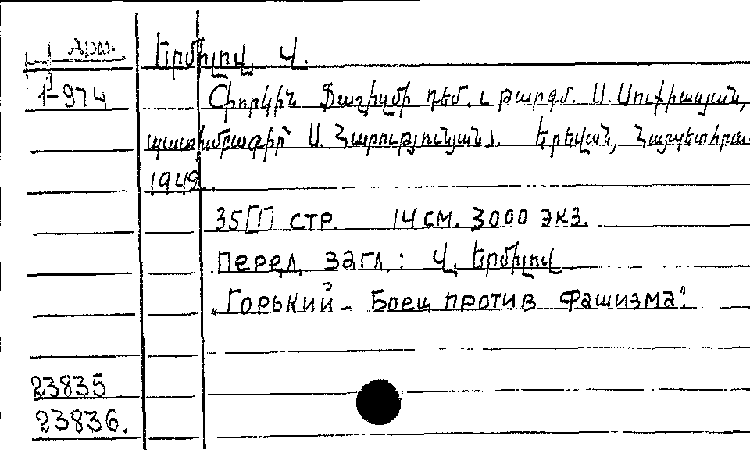 Арм. Երմիլով Վ.
1-974 Գորկին Ֆաշիզմի դեմ. թարգմ. Ս. Սուքիասյան,
պատ. խմբագիր՝ Ս. Հարությունյան։ Երեվան, Հայպետհրատ
1949.
35[] стр. 14 см. 3000 экз.
Перед. загл.: Վ. Երմիլով
„Горький - Боец против Фашизма".
23835
23836.